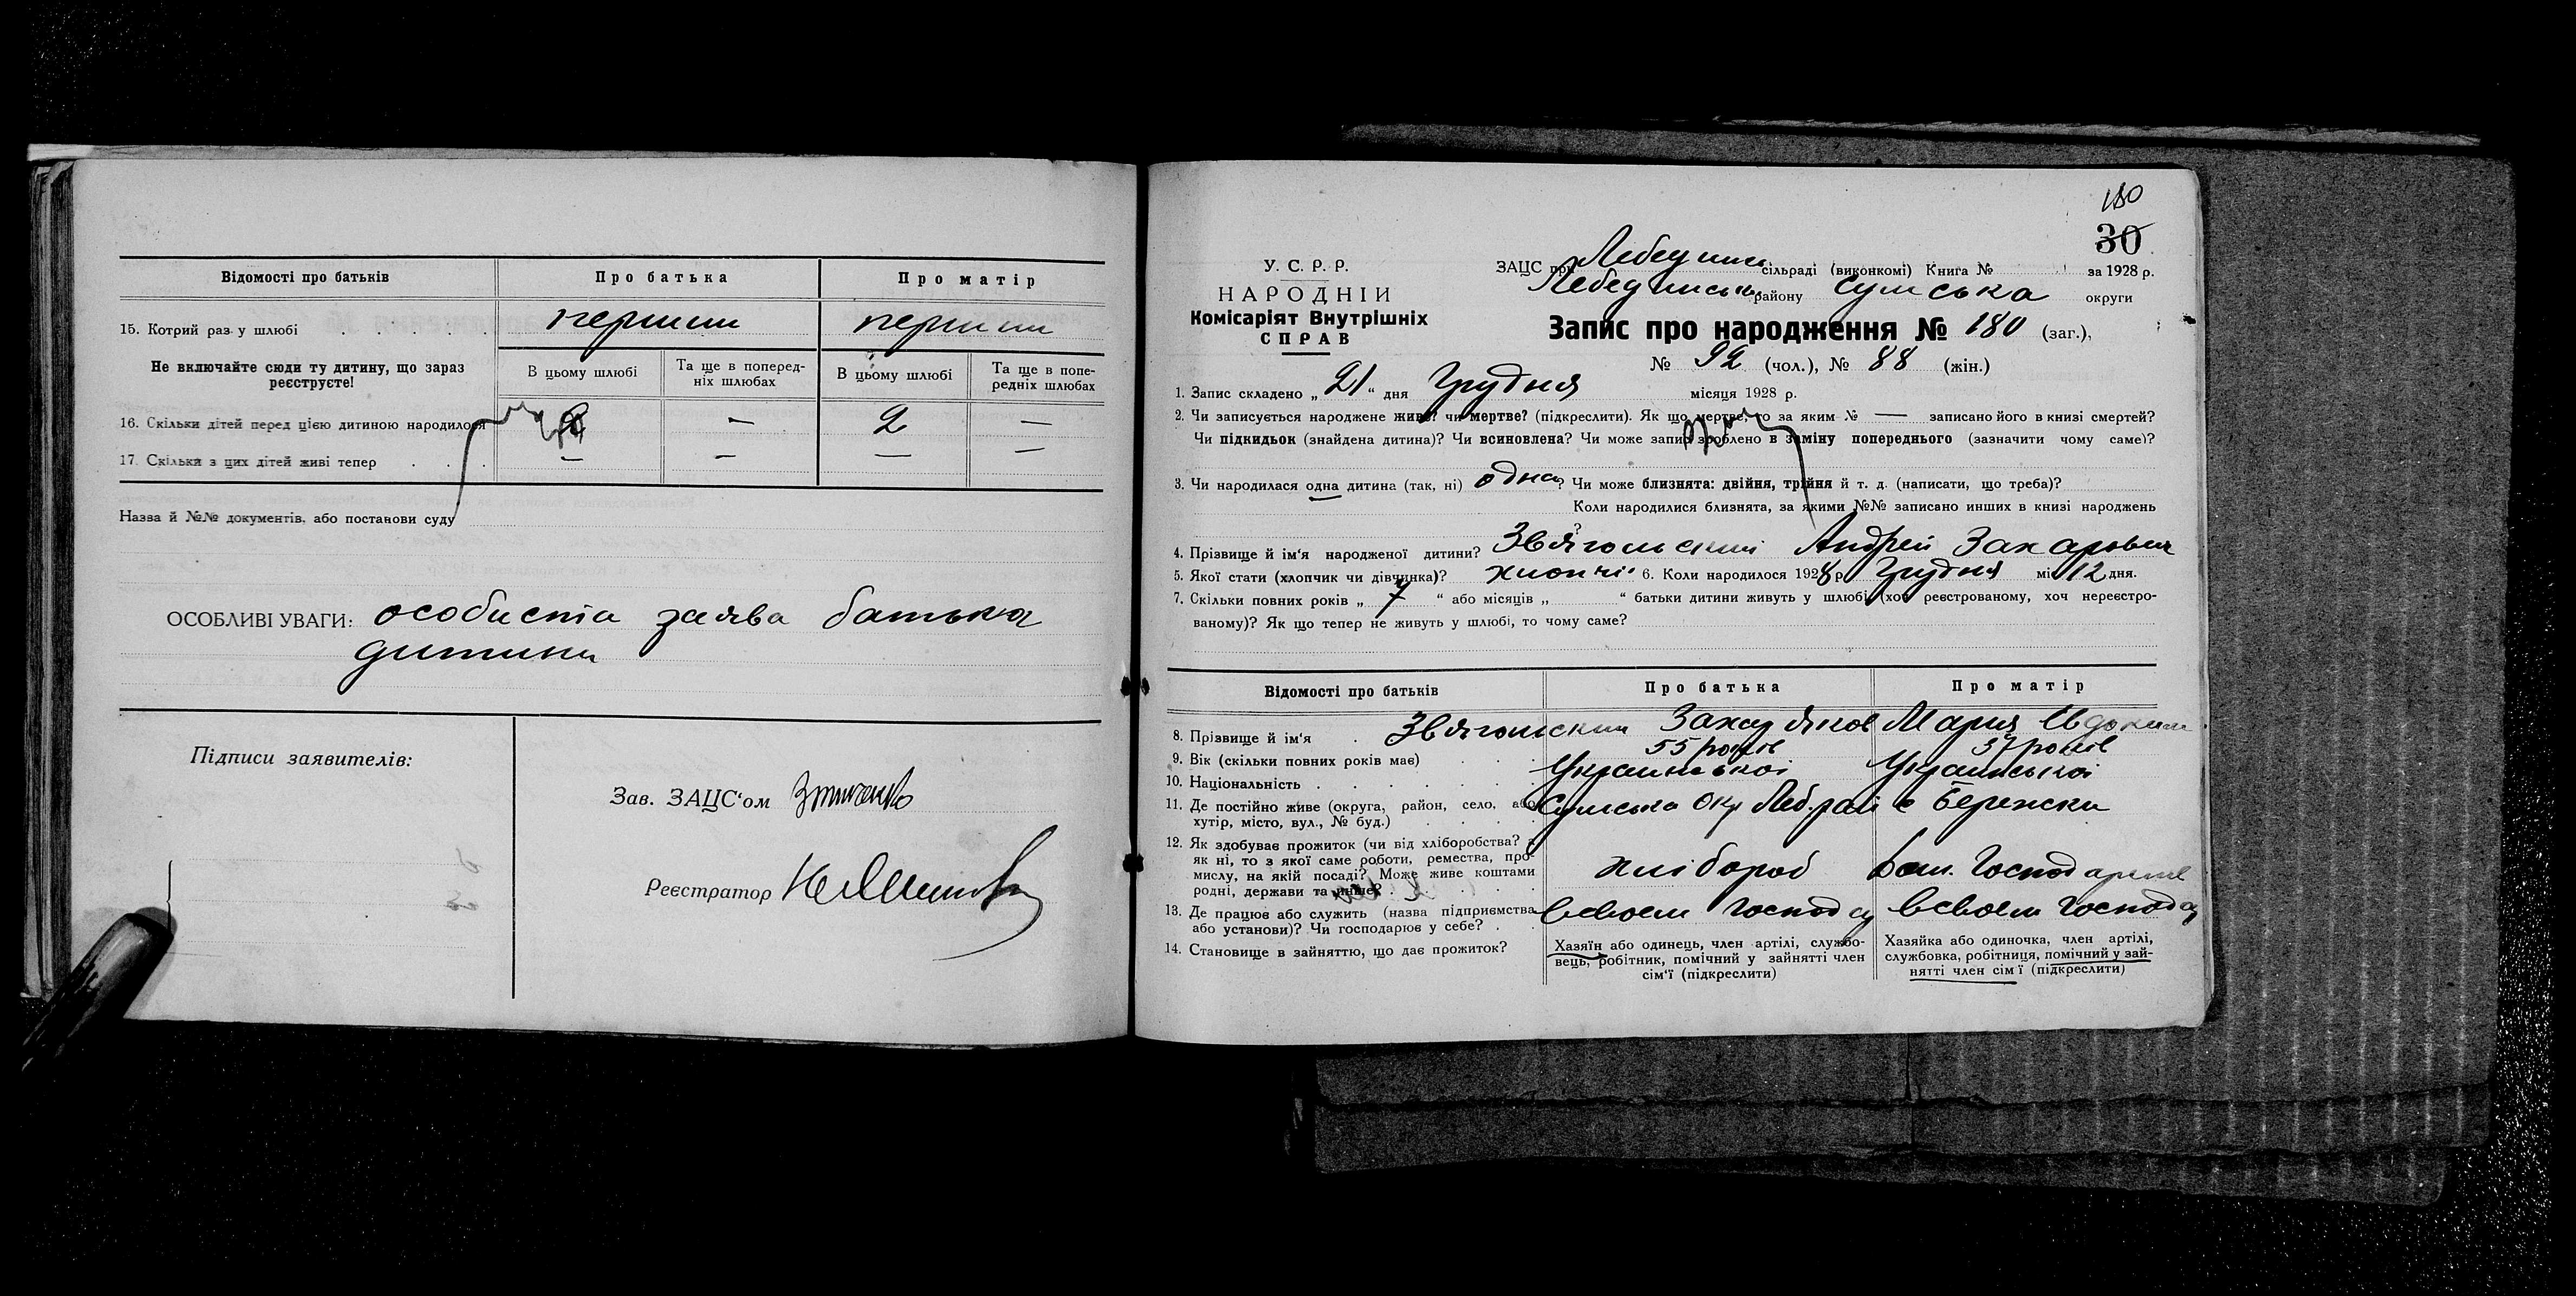 Відомості про батьків
Про батька
Про матір
15. Котрий раз у шлюбі . . . .
первий
первий
Не включайте сюди ту дитину, що зараз реєструєте!
В цьому шлюбі
Та ще в поперед-
ніх шлюбах
В цьому шлюбі
Та ще в попе-
редніх шлюбах
16. Скільки дітей перед цією дитиною народилося
2 — 2 —
17. Скільки з цих дітей живі тепер . . .
— — — —
Назва й №№ документів, або постанови суду
ОСОБЛИВІ УВАГИ: особиста заява батька
дитини
Підписи заявителів:
Зав. ЗАЦС'ом
Реєстратор
180
30
У. С. Р. Р.
НАРОДНІЙ
Комісаріят Внутрішніх
СПРАВ
ЗАЦС при Лебединс. сільраді (виконкомі) Книга № за 1928 р.
Лебединськ. району Сумська округи
Запис про народження № 180 (заг.),
№ 92 (чол.), № 88 (жін.)
1. Запис складено „ 21 “ дня Грудня місяця 1928 р.
2. Чи записується народжене живе? чи мертве? (підкреслити). Як що мертве, то за яким № — записано його в книзі смертей?
Чи підкидьок (знайдена дитина)? Чи всиновлена? Чи може запис зроблено в заміну попереднього (зазначити чому саме)?
3. Чи народилася одна дитина (так, ні) одна? Чи може близнята: двійня, трійня й т. д. (написати, що треба)?
Коли народилися близнята, за якими №№ записано инших в книзі народжень
?
4. Прізвище й ім'я народженої дитини? Звягольський Андрей Захарович
5. Якої стати (хлопчик чи дівчинка)? хлопч. 6. Коли народилося 1928 р. Грудня міс. 12 дня.
7. Скільки повних років „ 7 “ або місяців „ “ батьки дитини живуть у шлюбі (хоч реєстрованому, хоч нереєстро-
ваному)? Як що тепер не живуть у шлюбі, то чому саме?
Відомості про батьків
Про батька
Про матір
8. Прізвище й ім'я . Звягольский Захар Яков Мария Евдоким
9. Вік (скільки повних років має) . . . 55 років 37 років
10. Національність . . . . . . Украинської Украинської
11. Де постійно живе (округа, район, село, або
хутір, місто, вул., № буд.) . . . .
Сумська Окр Леб. рай с Бережки
12. Як здобуває прожиток (чи від хліборобства? а
як ні, то з якої саме роботи, ремества, про-
мислу, на якій посаді? Може живе коштами
родні, держави та инше? . . . . . .
хлібороб
13. Де працює або служить (назва підприємства
або установи)? Чи господарює у себе? . .
всвоем господ
всвоем господ
14. Становище в зайняттю, що дає прожиток?
Хазяїн або одинець, член артілі, службо-
вець, робітник, помічний у зайнятті член
сім'ї (підкреслити)
Хазяйка або одиночка, член артілі,
службовка, робітниця, помічний у зай-
нятті член сім'ї (підкреслити)